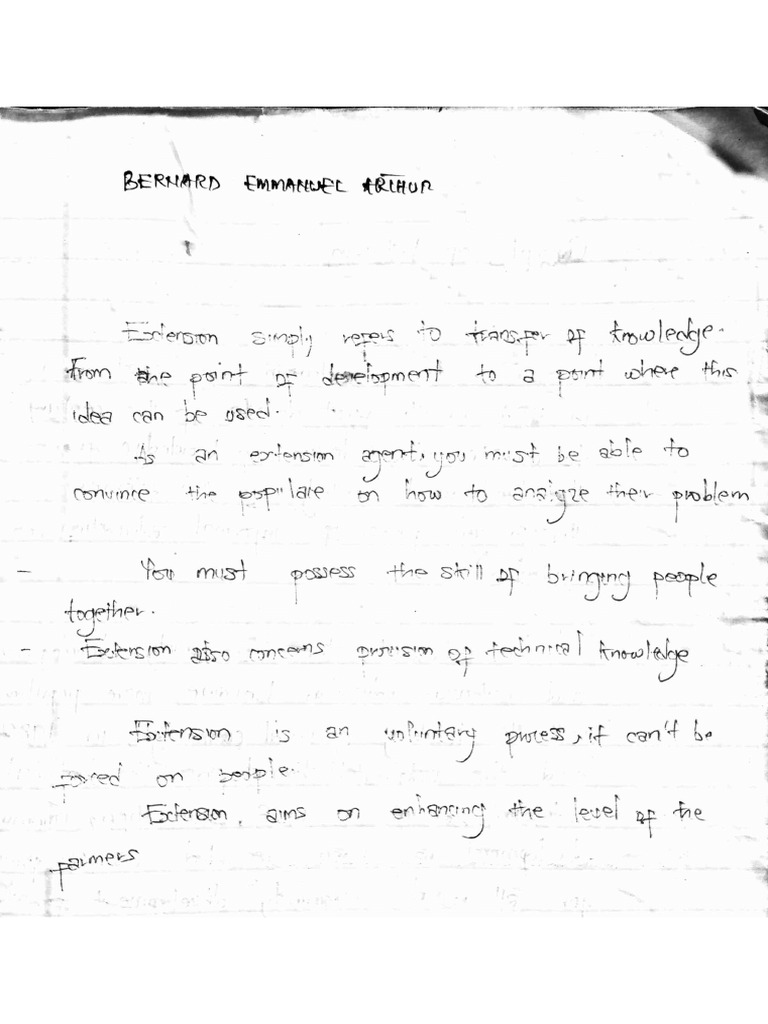 BERNARD EMMANUEL ARTHUR
Extension simply refers to transfer of knowledge.
From the point of development to a point where this
idea can be used.
As an extension agent, you must be able to
convince the populare on how to analyze their problem
- You must possess the skill of bringing people
together.
- Extension also concerns provision of technical knowledge
Extension is an voluntary process, it can't be
forced on people.
Extension, aims on enhancing the level of the
farmers